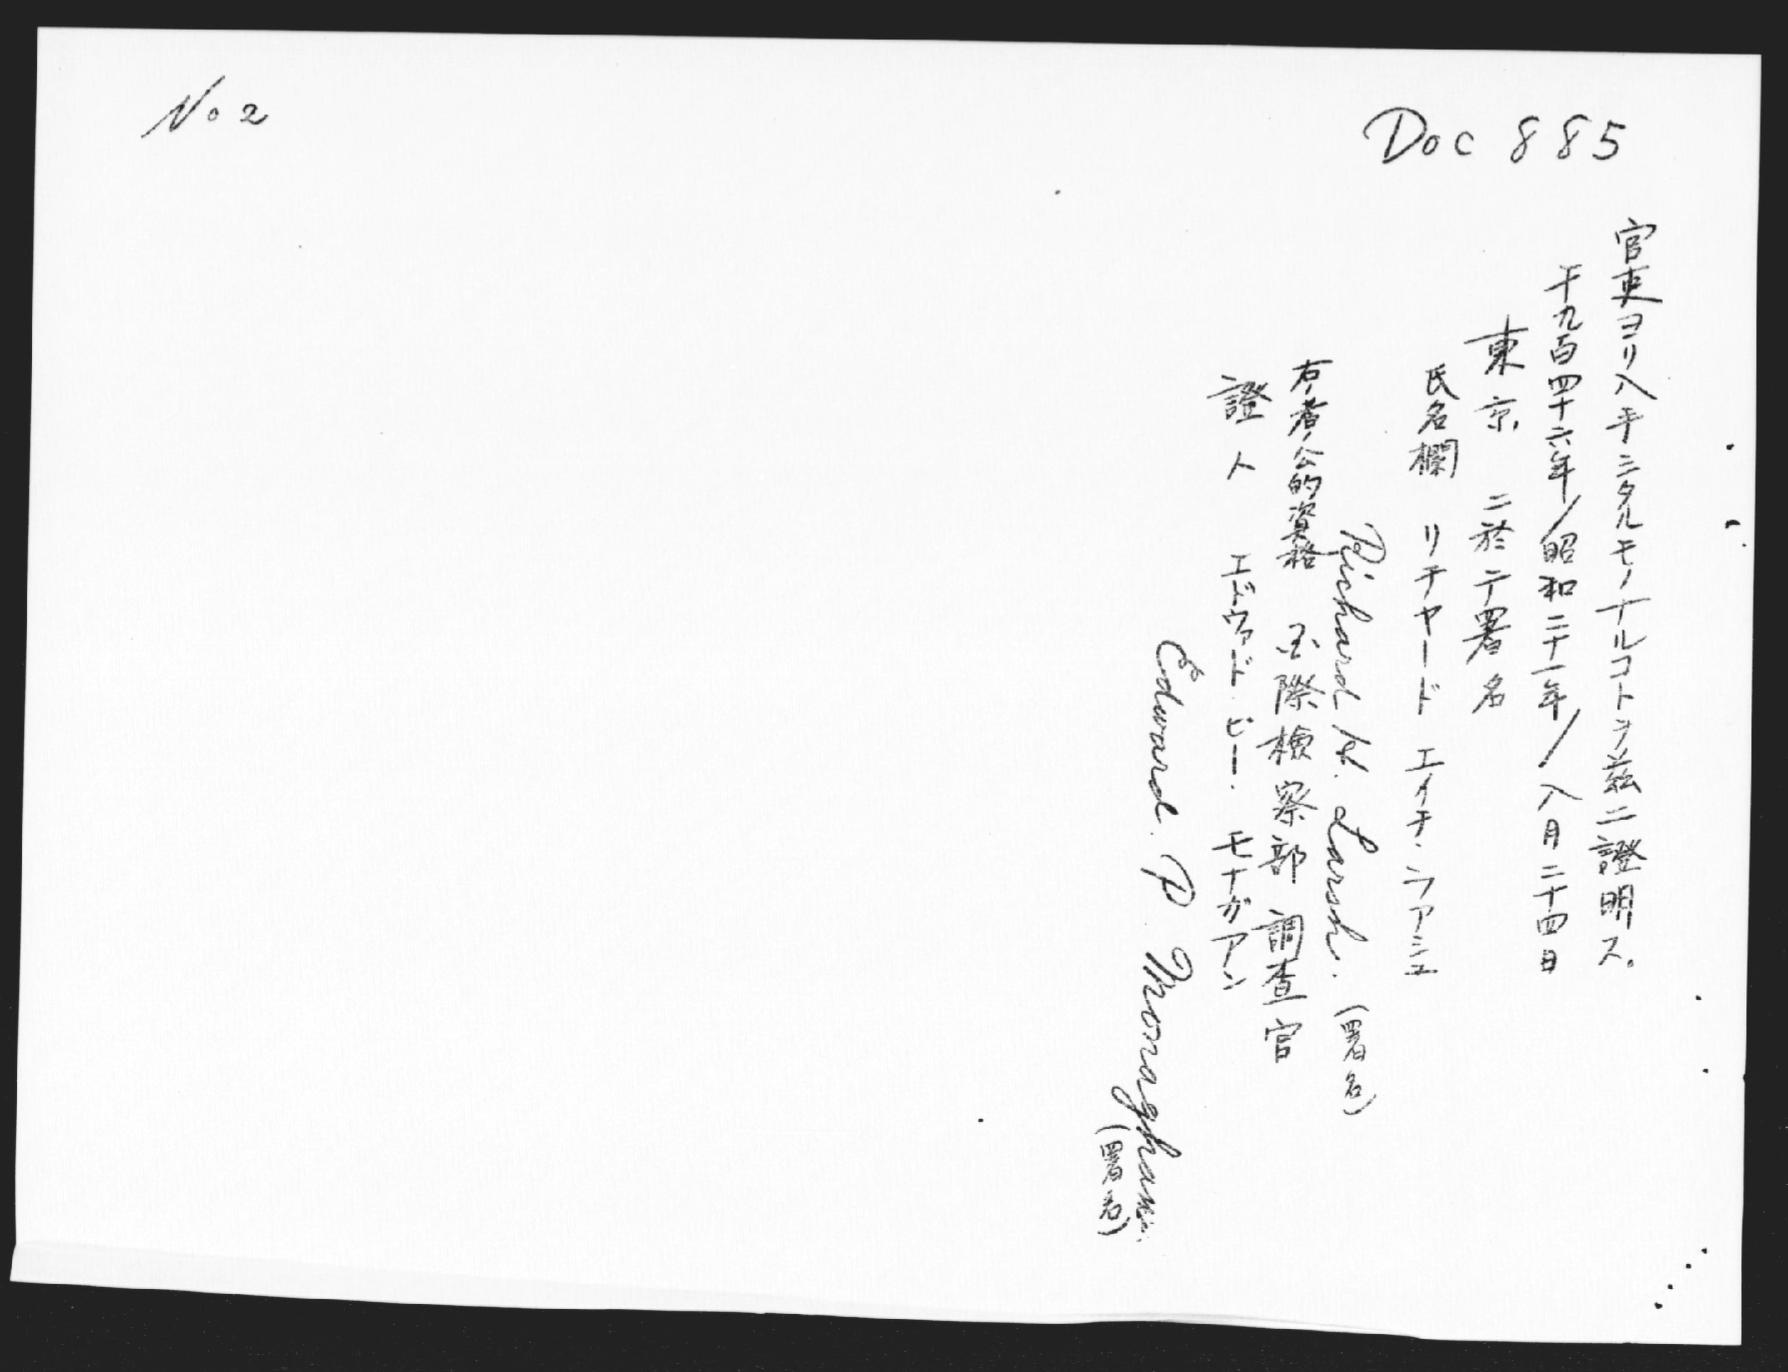 Doc 885
No 2
官吏ヨリ入手シタルモノナルコトヲ茲ニ證明ス。
千九百四十六年/昭和二十一年/八月二十四日
東京 ニ於テ署名
氏名欄 リチャード エイチ・ラアシュ
Richard H. Larsh. (署名)
右ノ者ノ公的資格 国際檢察部 調査官
證人 エドヴァド・ピー・モナガアン
Edward. P. Monaghan (署名)